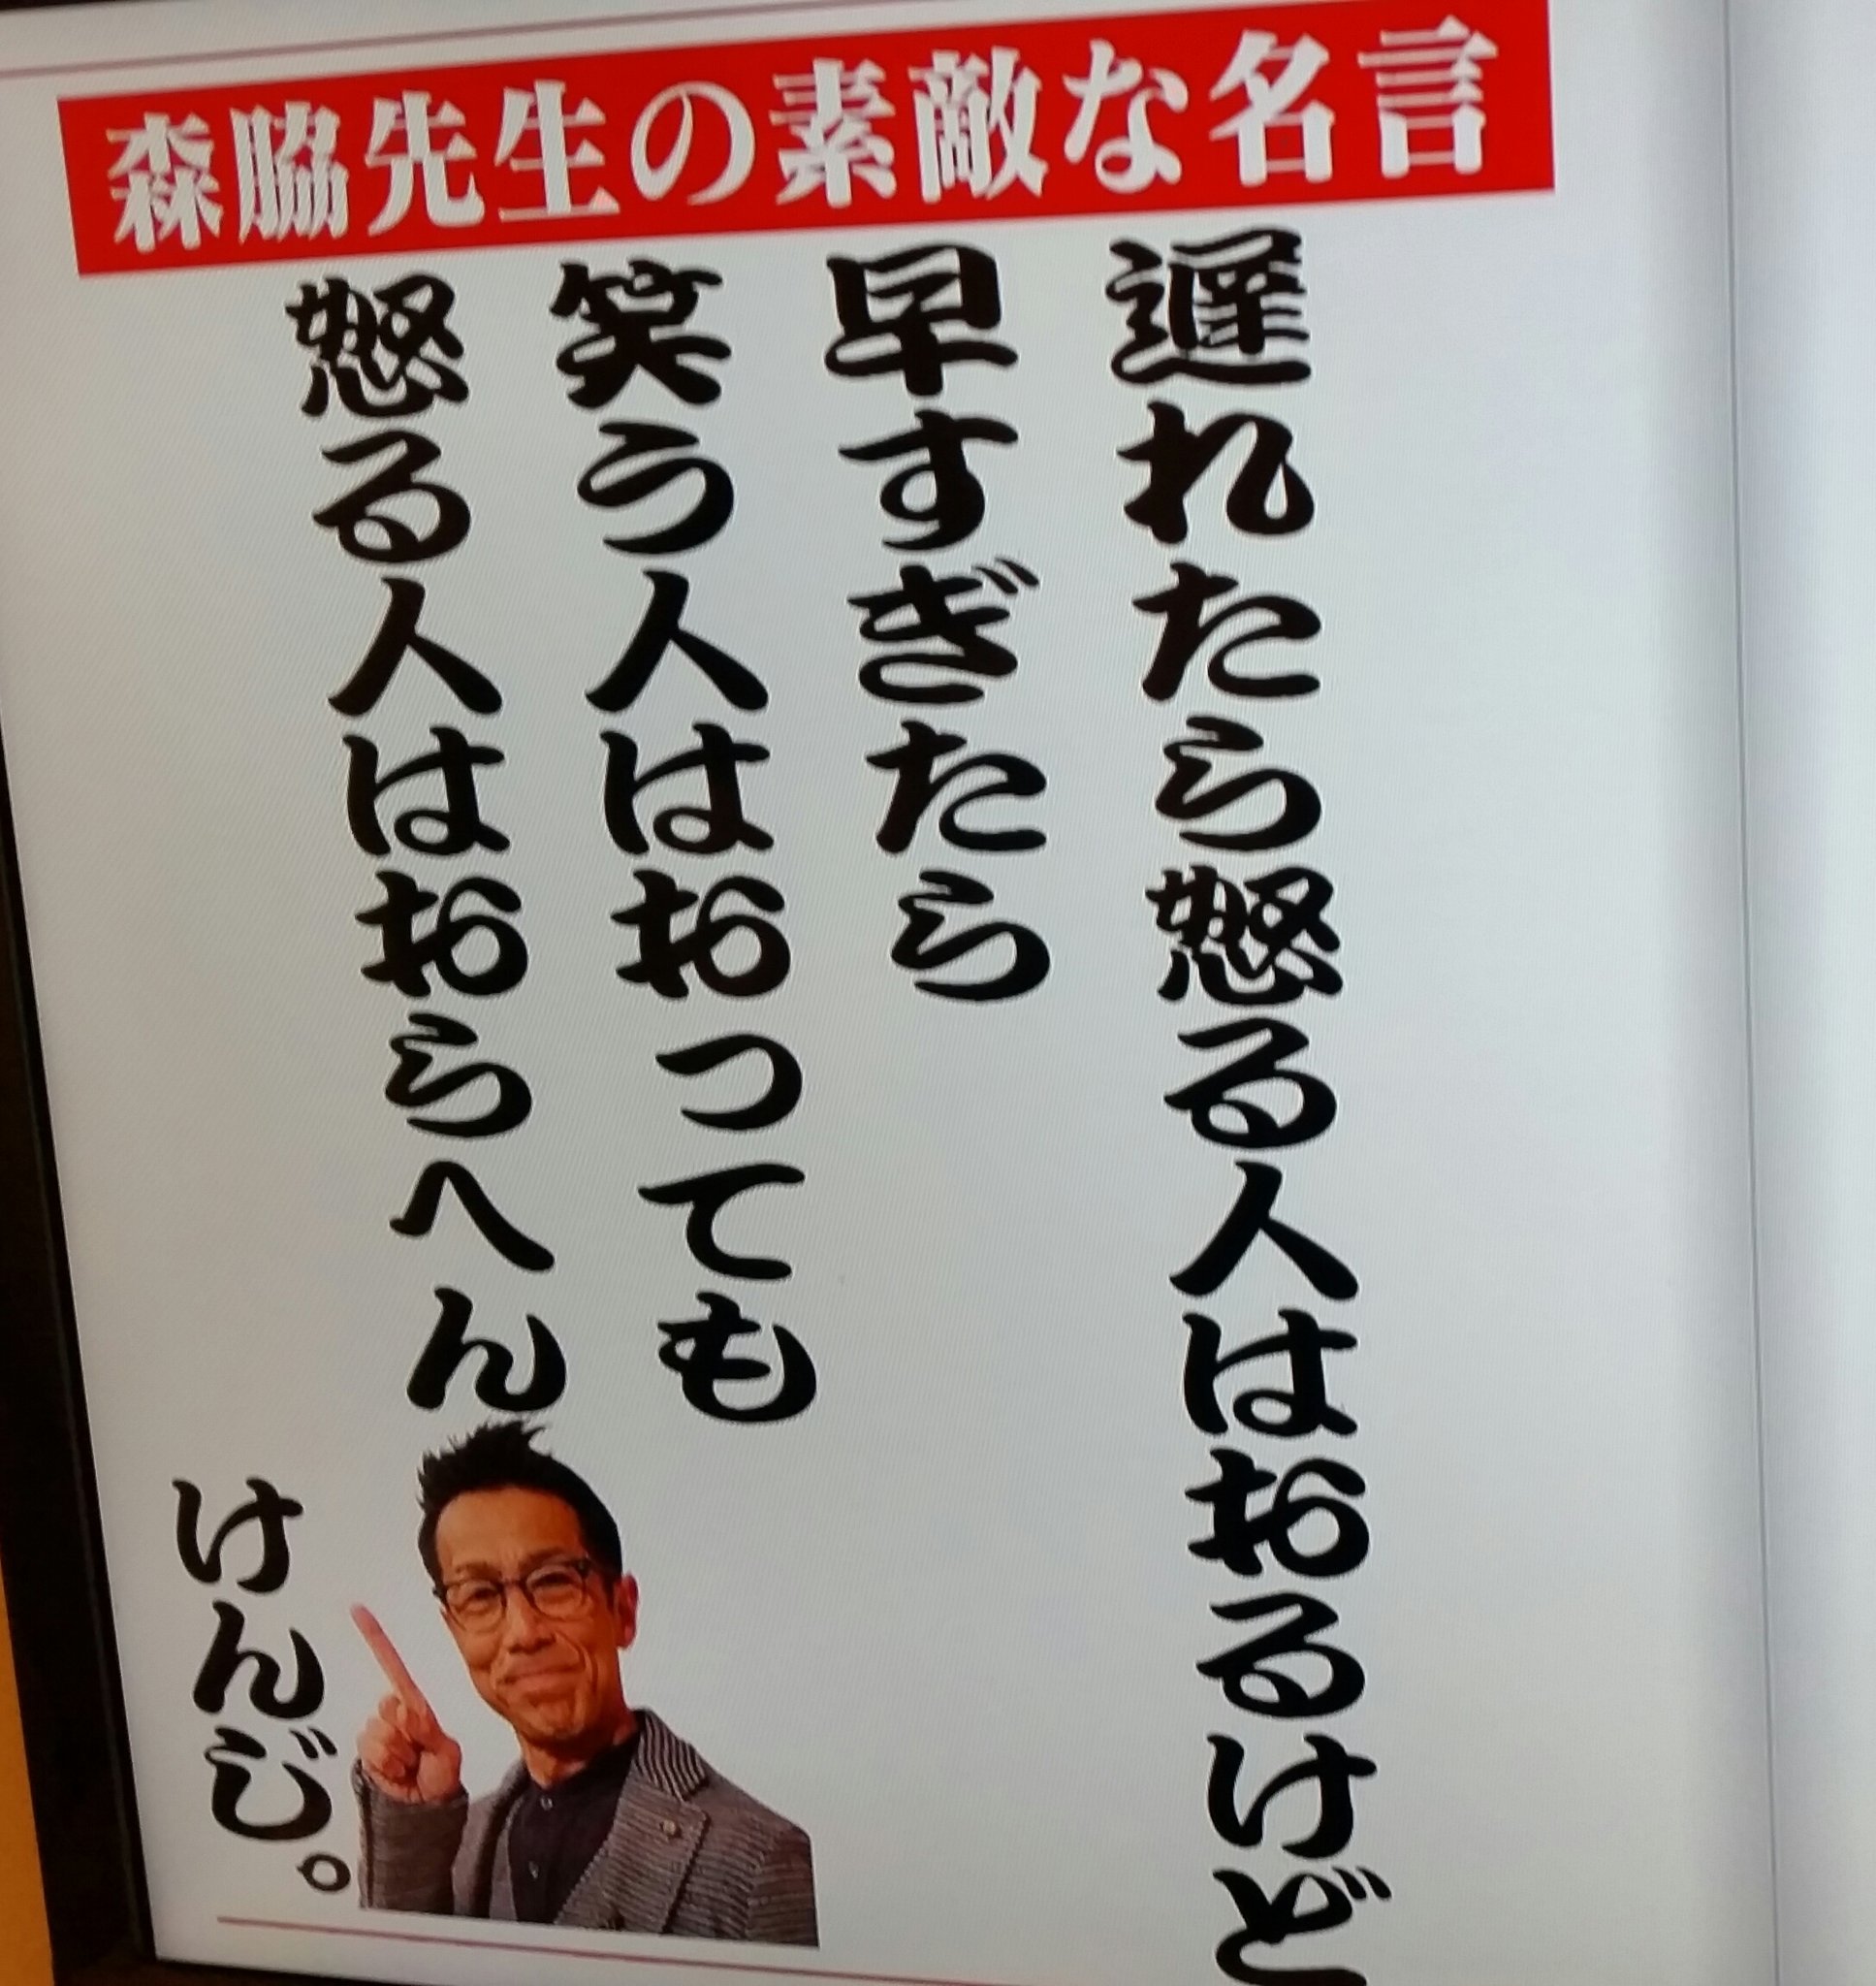 森脇先生の素敵な名言
遅れたら怒る人はおるけど
早すぎたら
笑う人はおっても
怒る人はおらへん
けんじ。